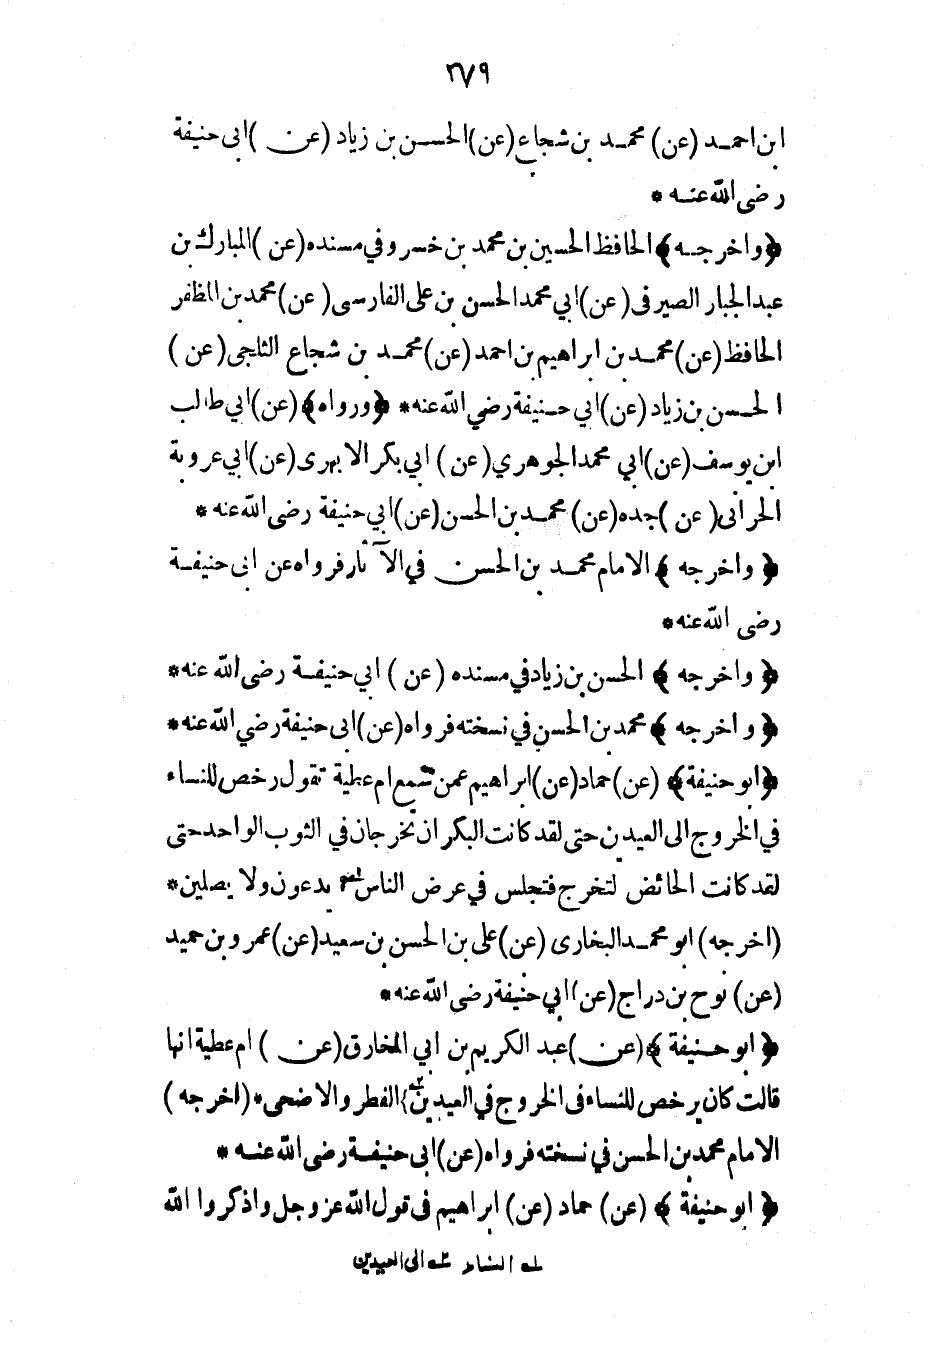 ٣٧٩
ابن احمد (عن) محمد بن شجاع (عن) الحسن بن زياد (عن) ابى حنيفة
رضى الله عنه *
﴿واخرجه﴾ الحافظ الحسين بن محمد بن خسرو في مسنده (عن) المبارك بن
عبد الجبار الصير فى (عن) ابي محمد الحسن بن على الفارسى (عن) محمد بن المظفر
الحافظ (عن) محمد بن ابراهيم بن احمد (عن) محمد بن شجاع الثلجى (عن)
الحسن بن زياد (عن) ابي حنيفة رضي الله عنه * ﴿ورواه﴾ (عن) ابي طالب
ابن يوسف (عن) ابي محمد الجوهري (عن) ابي بكر الابهرى (عن) ابي عروبة
الحرانى (عن) جده (عن) محمد بن الحسن (عن) ابي حنيفة رضى الله عنه *
﴿واخرجه﴾ الامام محمد بن الحسن في الآثار فرواه عن ابى حنيفة
رضى الله عنه *
﴿واخرجه﴾ الحسن بن زياد في مسنده (عن) ابي حنيفة رضى الله عنه *
﴿واخرجه﴾ محمد بن الحسن في نسخته فرواه (عن) ابى حنيفة رضي الله عنه *
﴿ابو حنيفة﴾ (عن) حماد (عن) ابراهيم عمن سمع ام عطية تقول رخص للنساء
في الخروج الى العيدين حتى لقد كانت البكر ان تخرجان في الثوب الواحد حتى
لقد كانت الحائض لتخرج فتجلس في عرض الناس يدعون ولا يصلين *
(اخرجه) ابو محمد البخارى (عن) على بن الحسن بن سعيد (عن) عمرو بن حميد
(عن) نوح بن دراج (عن) ابي حنيفة رضى الله عنه *
﴿ابو حنيفة﴾ (عن) عبد الكريم بن ابي المخارق (عن) ام عطية انها
قالت كان يرخص للنساء فى الخروج في العيدين الفطر والاضحى * (اخرجه)
الامام محمد بن الحسن في نسخته فرواه (عن) ابى حنيفة رضى الله عنه *
﴿ابو حنيفة﴾ (عن) حماد (عن) ابراهيم فى قول الله عز وجل واذكروا الله
الى العيدين